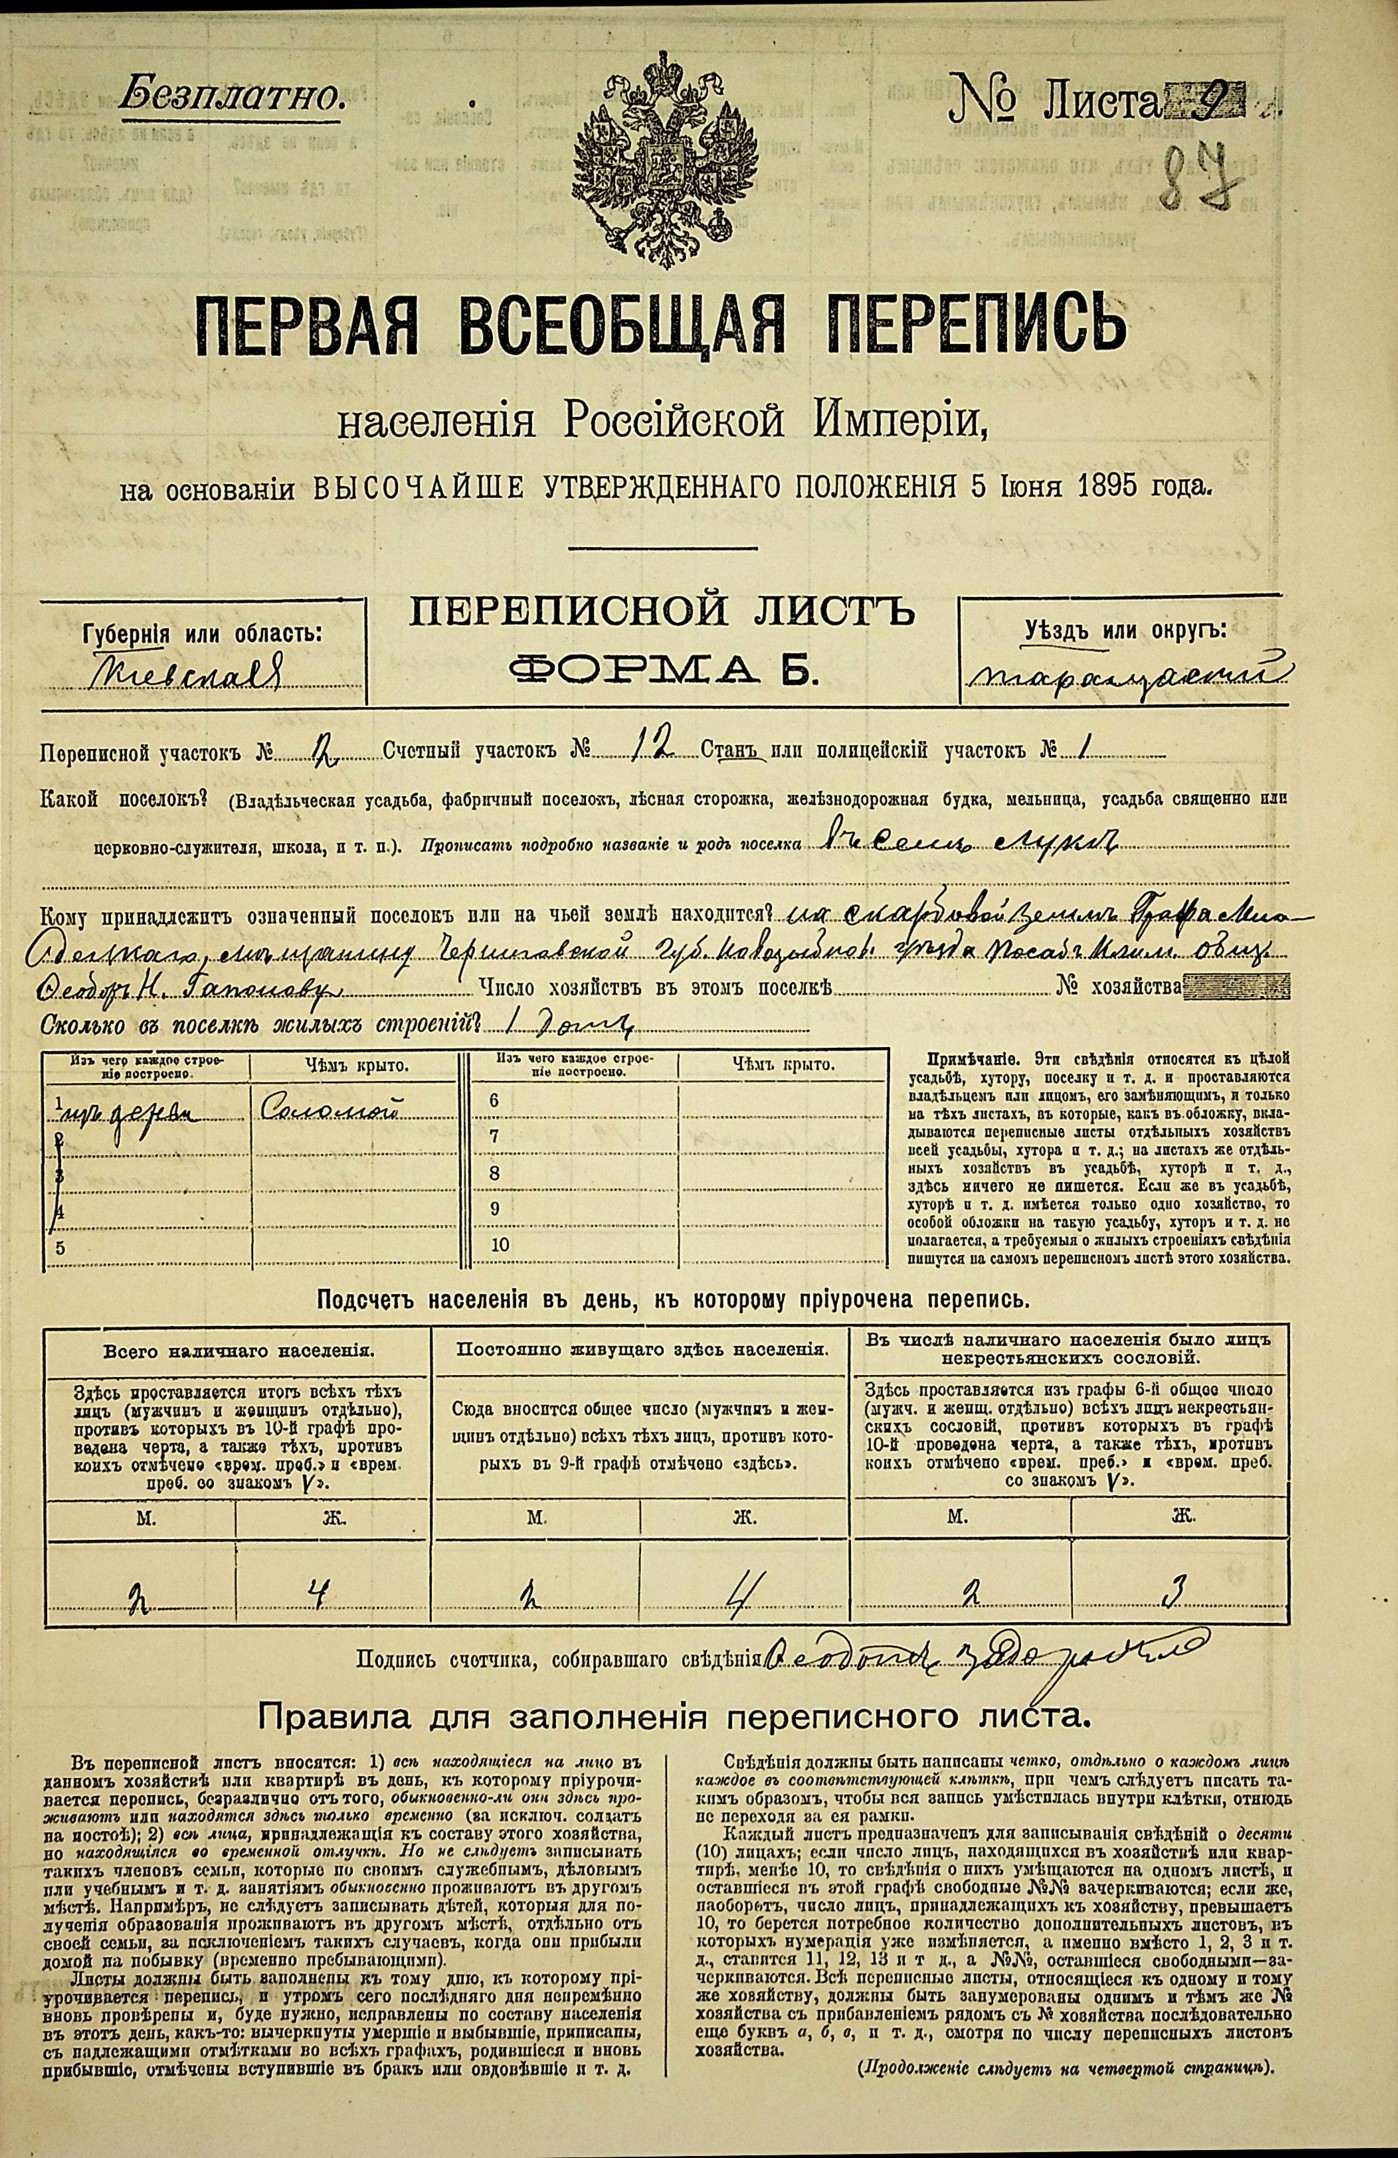 Безплатно.
№ Листа 9
87
ПЕРВАЯ ВСЕОБЩАЯ ПЕРЕПИСЬ
населенія Россійской Имперіи,
на основаніи ВЫСОЧАЙШЕ УТВЕРЖДЕННАГО ПОЛОЖЕНІЯ 5 Іюня 1895 года.
ПЕРЕПИСНОЙ ЛИСТЪ
ФОРМА Б.
Губернія или область:
Кіевская
Уѣздъ или округъ:
Таращаскій
Переписной участокъ № 2 Счетный участокъ № 12 Станъ или полицейскій участокъ № 1
Какой поселокъ? (Владѣльческая усадьба, фабричный поселокъ, лѣсная сторожка, желѣзнодорожная будка, мельница, усадьба священно или
церковно-служителя, школа, и т. п.). Прописать подробно названіе и родъ поселка въ селѣ Лукѣ
Кому принадлежитъ означенный поселокъ или на чьей землѣ находится? на скарбовой землѣ Графа
мѣщанину Черниговской Губ. Новозыбков. уѣзда Посадъ Клим. общ.
Ѳеодоръ Н. Гапонову Число хозяйствъ в этомъ поселкѣ № хозяйства
Сколько въ поселкѣ жилыхъ строеній? 1 домъ
Изъ чего каждое строе-
ніе построено.
Чѣмъ крыто.
Изъ чего каждое строе-
ніе построено.
Чѣмъ крыто.
1 изъ дерев Соломой 6
2 7
3 8
4 9
5 10
Примѣчаніе. Эти свѣдѣнія относятся къ цѣлой
усадьбѣ, хутору, поселку и т. д. и проставляются
владѣльцемъ или лицомъ, его замѣняющимъ, и только
на тѣхъ листахъ, въ которые, какъ въ обложку, вкла-
дываются переписные листы отдѣльныхъ хозяйствъ
всей усадьбы, хутора и т. д.; на листахъ же отдѣль-
ныхъ хозяйствъ въ усадьбѣ, хуторѣ и т. д.,
здѣсь ничего не пишется. Если же въ усадьбѣ,
хуторѣ и т. д. имѣется только одно хозяйство, то
особой обложки на такую усадьбу, хуторъ и т. д. не
полагается, а требуемыя о жилыхъ строеніяхъ свѣдѣнія
пишутся на самомъ переписномъ листѣ этого хозяйства.
Подсчетъ населенія въ день, къ которому пріурочена перепись.
Всего наличнаго населенія.
Здѣсь проставляется итогъ всѣхъ тѣхъ
лицъ (мужчинъ и женщинъ отдѣльно),
противъ которыхъ въ 10-й графѣ про-
ведена черта, а также тѣхъ, противъ
коихъ отмѣчено «врем. преб.» и «врем.
преб. со знакомъ V».
Постоянно живущаго здѣсь населенія.
Сюда вносится общее число (мужчинъ и жен-
щинъ отдѣльно) всѣхъ тѣхъ лицъ, противъ кото-
рыхъ въ 9-й графѣ отмѣчено «здѣсь».
Въ числѣ наличнаго населенія было лицъ
некрестьянскихъ сословій.
Здѣсь проставляется изъ графы 6-й общее число
(мужч. и женщ. отдѣльно) всѣхъ лицъ некрестьян-
скихъ сословій, противъ которыхъ въ графѣ
10-й проведена черта, а также тѣхъ, противъ
коихъ отмѣчено «врем. преб.» и «врем. преб.
со знакомъ V».
М. Ж. М. Ж. М. Ж.
2 4 2 4 2 3
Подпись счотчика, собиравшаго свѣдѣнія
Правила для заполненія переписного листа.
Въ переписной листъ вносятся: 1) всѣ находящіеся на лицо въ
данномъ хозяйствѣ или квартирѣ въ день, къ которому пріурочи-
вается перепись, безразлично отъ того, обыкновенно-ли они здѣсь про-
живаютъ или находятся здѣсь только временно (за исключ. солдатъ
на постоѣ); 2) всѣ лица, принадлежащія къ составу этого хозяйства,
но находящіяся во временной отлучкѣ. Но не слѣдуетъ записывать
такихъ членовъ семьи, которые по своимъ служебнымъ, дѣловымъ
или учебнымъ и т. д. занятіямъ обыкновенно проживаютъ въ другомъ
мѣстѣ. Напримѣръ, не слѣдуетъ записывать дѣтей, которыя для по-
лученія образованія проживаютъ въ другомъ мѣстѣ, отдѣльно отъ
своей семьи, за исключеніемъ такихъ случаевъ, когда они прибыли
домой на побывку (временно пребывающими).
Листы должны быть заполнены къ тому дню, къ которому прі-
урочивается перепись, и утромъ сего послѣдняго дня непремѣнно
вновь провѣрены и, буде нужно, исправлены по составу населенія
въ этотъ день, какъ-то: вычеркнуты умершіе и выбывшіе, приписаны,
съ надлежащими отмѣтками во всѣхъ графахъ, родившіеся и вновь
прибывшіе, отмѣчены вступившіе въ бракъ или овдовѣвшіе и т. д.
Свѣдѣнія должны быть написаны четко, отдѣльно о каждомъ лицѣ
каждое въ соотвѣтствующей клѣткѣ, при чемъ слѣдуетъ писать та-
кимъ образомъ, чтобы вся запись умѣстилась внутри клѣтки, отнюдь
не переходя за ея рамки.
Каждый листъ предназначенъ для записыванія свѣдѣній о десяти
(10) лицахъ; если число лицъ, находящихся въ хозяйствѣ или квар-
тирѣ, менѣе 10, то свѣдѣнія о нихъ умѣщаются на одномъ листѣ, и
оставшіеся въ этой графѣ свободные №№ зачеркиваются; если же,
наоборотъ, число лицъ, принадлежащихъ къ хозяйству, превышаетъ
10, то берется потребное количество дополнительныхъ листовъ, въ
которыхъ нумерація уже измѣняется, а именно вмѣсто 1, 2, 3 и т.
д., ставится 11, 12, 13 и т д., а №№, оставшіеся свободными—за-
черкиваются. Всѣ переписные листы, относящіеся къ одному и тому
же хозяйству, должны быть занумерованы однимъ и тѣмъ же №
хозяйства съ прибавленіемъ рядомъ съ № хозяйства послѣдовательно
еще буквъ а, б, в, и т. д., смотря по числу переписныхъ листовъ
хозяйства.
(Продолженіе слѣдуетъ на четвертой страницѣ).